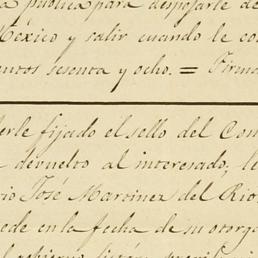 a publica para despojarle de
México y salir cuando le co
entos sesenta y ocho. = Firma
erle fijado el sello del Con
devuelto al interesado, le
rio José Martinez del Rio
ede en la fecha de su otorga